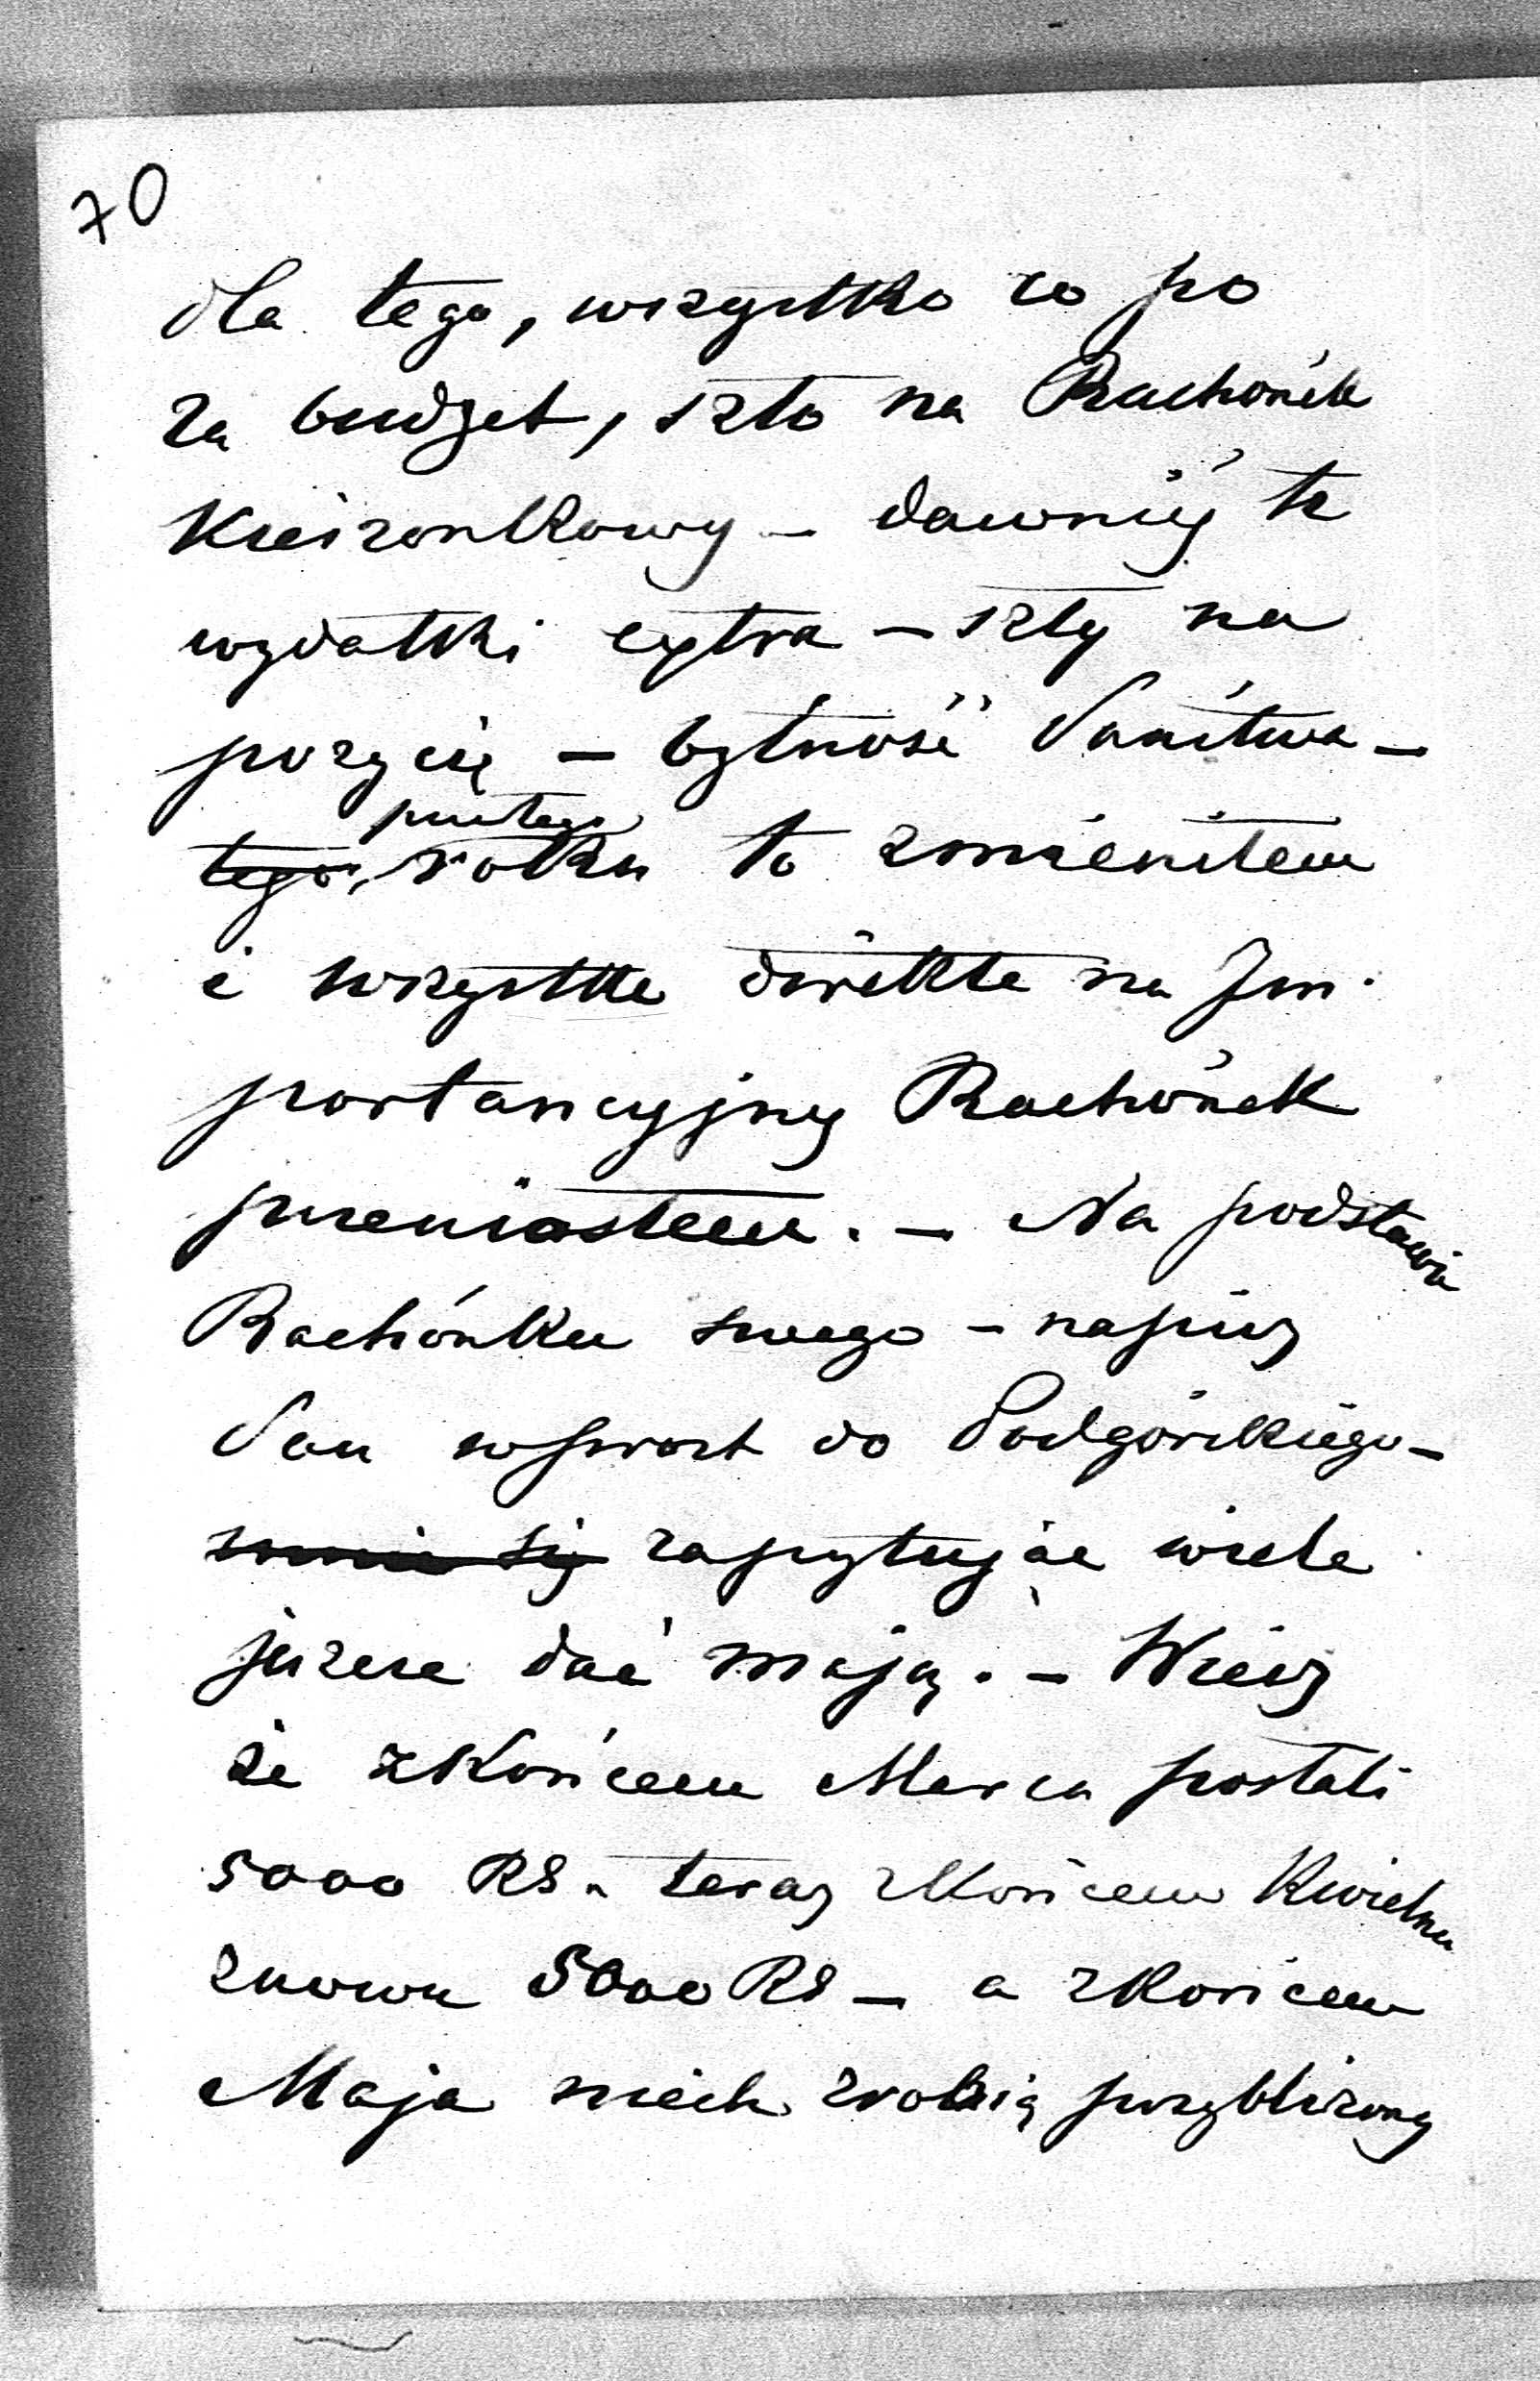 70
dla tego, wszystko co po
za budżet, szło na Rachónek
Kieszonkowy – dawniéj te
wydatki extra – szły na
pozycię – bytność Państwa –
tego, roku to zmieniłem
i wszystkie direkte na Im-
portancyjny Rachónek
przeniosłem. – Na podstawie
Rachónku swego – napisz
Pan wprost do Podgórskiego –
zapytując wiele
jeszcze dać mają. – Wiesz
że z Końcem Marca posłali
5000 RS. teraz z Końcem Kwietnia
znowu 5000 RS – a z Końcem
Maja niech zrobią przybliżony